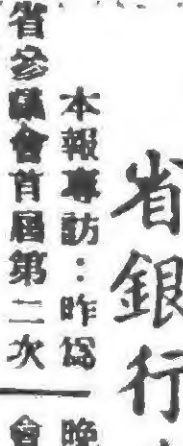 省銀行
本報專訪：昨爲
省參議會首屆第二次
晚
會